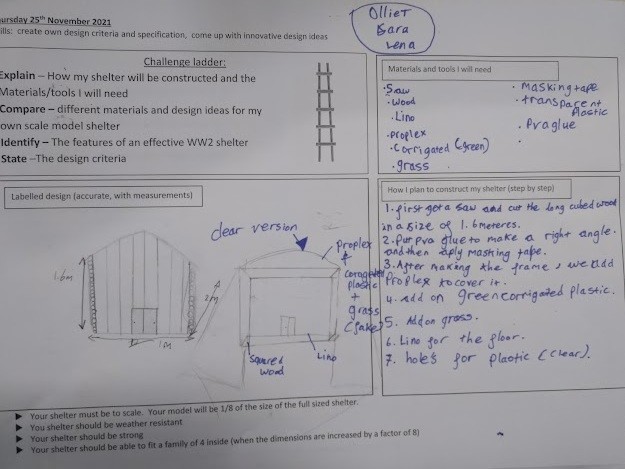 ursday 25th November 2021
ills: create own design criteria and specification, come up with innovative design ideas
OllieT
Sara
Lena
Challenge ladder:
Explain – How my shelter will be constructed and the
Materials/tools I will need
Compare – different materials and design ideas for my
own scale model shelter
Identify – The features of an effective WW2 shelter
State –The design criteria
Materials and tools I will need
·Saw
·Wood
·Lino
·Proplex
·Corrigated (green)
·grass
· Masking tape
· transparent
Plastic
· Pvaglue
·
Labelled design (accurate, with measurements)
clear version
1.6m
1m
2m
Proplex
+
plastic
+
grass
(fake)
Squared
wood
Lino
How I plan to construct my shelter (step by step)
1.first get a saw and cut the long cubed wood
in a size of 1.6meteres.
2.Put pva glue to make a right angle.
and then aply masking tape.
3.After making the frame, we add
Proplex to cover it.
4. add on green corrigated plastic.
5. Add on grass.
6. Lino for the floor.
7. holes for plastic (clear).
➤ Your shelter must be to scale. Your model will be 1/8 of the size of the full sized shelter.
➤ You shelter should be weather resistant
➤ Your shelter should be strong
➤ Your shelter should be able to fit a family of 4 inside (when the dimensions are increased by a factor of 8)